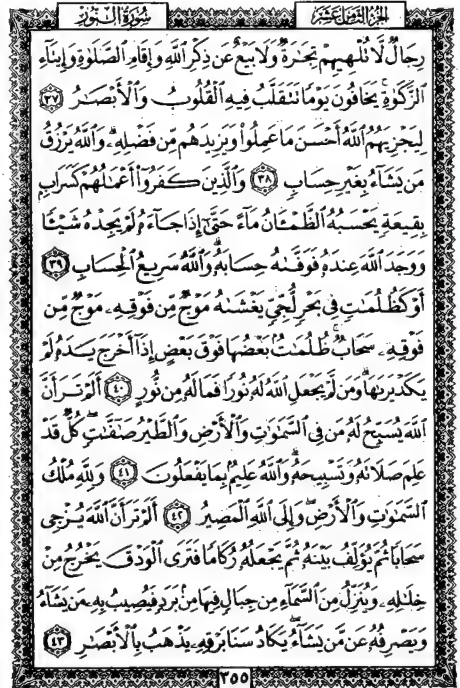 سُورَةُ النُّورِ الجُزْءُ الثَّامِنَ عَشَرَ
رِجَالٌ لَّا تُلْهِيهِمْ تِجَٰرَةٌ وَلَا بَيْعٌ عَن ذِكْرِ ٱللَّهِ وَإِقَامِ ٱلصَّلَوٰةِ وَإِيتَآءِ
ٱلزَّكَوٰةِ يَخَافُونَ يَوْمًا تَتَقَلَّبُ فِيهِ ٱلْقُلُوبُ وَٱلْأَبْصَٰرُ ٣٧
لِيَجْزِيَهُمُ ٱللَّهُ أَحْسَنَ مَا عَمِلُوا۟ وَيَزِيدَهُم مِّن فَضْلِهِۦ وَٱللَّهُ يَرْزُقُ
مَن يَشَآءُ بِغَيْرِ حِسَابٍ ٣٨ وَٱلَّذِينَ كَفَرُوٓا۟ أَعْمَٰلُهُمْ كَسَرَابٍۭ
بِقِيعَةٍ يَحْسَبُهُ ٱلظَّمْـَٔانُ مَآءً حَتَّىٰٓ إِذَا جَآءَهُۥ لَمْ يَجِدْهُ شَيْـًٔا
وَوَجَدَ ٱللَّهَ عِندَهُۥ فَوَفَّىٰهُ حِسَابَهُۥ وَٱللَّهُ سَرِيعُ ٱلْحِسَابِ ٣٩
أَوْ كَظُلُمَٰتٍ فِى بَحْرٍ لُّجِّىٍّ يَغْشَىٰهُ مَوْجٌ مِّن فَوْقِهِۦ مَوْجٌ مِّن
فَوْقِهِۦ سَحَابٌ ظُلُمَٰتٌۢ بَعْضُهَا فَوْقَ بَعْضٍ إِذَآ أَخْرَجَ يَدَهُۥ لَمْ
يَكَدْ يَرَىٰهَا وَمَن لَّمْ يَجْعَلِ ٱللَّهُ لَهُۥ نُورًا فَمَا لَهُۥ مِن نُّورٍ ٤٠ أَلَمْ تَرَ أَنَّ
ٱللَّهَ يُسَبِّحُ لَهُۥ مَن فِى ٱلسَّمَٰوَٰتِ وَٱلْأَرْضِ وَٱلطَّيْرُ صَٰٓفَّٰتٍ كُلٌّ قَدْ
عَلِمَ صَلَاتَهُۥ وَتَسْبِيحَهُۥ وَٱللَّهُ عَلِيمٌۢ بِمَا يَفْعَلُونَ ٤١ وَلِلَّهِ مُلْكُ
ٱلسَّمَٰوَٰتِ وَٱلْأَرْضِ وَإِلَى ٱللَّهِ ٱلْمَصِيرُ ٤٢ أَلَمْ تَرَ أَنَّ ٱللَّهَ يُزْجِى
سَحَابًا ثُمَّ يُؤَلِّفُ بَيْنَهُۥ ثُمَّ يَجْعَلُهُۥ رُكَامًا فَتَرَى ٱلْوَدْقَ يَخْرُجُ مِنْ
خِلَٰلِهِۦ وَيُنَزِّلُ مِنَ ٱلسَّمَآءِ مِن جِبَالٍ فِيهَا مِنۢ بَرَدٍ فَيُصِيبُ بِهِۦ مَن يَشَآءُ
وَيَصْرِفُهُۥ عَن مَّن يَشَآءُ يَكَادُ سَنَا بَرْقِهِۦ يَذْهَبُ بِٱلْأَبْصَٰرِ ٤٣
٣٥٥